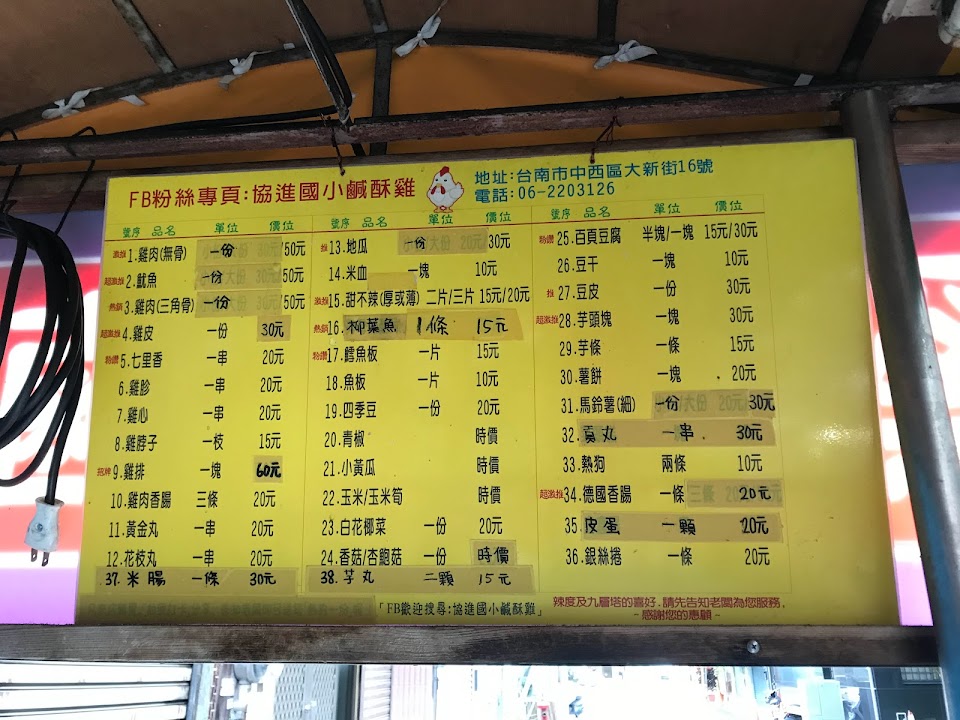 FB粉絲專頁:協進國小鹹酥雞
地址:台南市中西區大新街16號
電話:06-2203126
號序 品名 單位 價位
激推 1.雞肉(無骨) 一份 50元
超激推 2.魷魚 一份 50元
熱銷 3.雞肉(三角骨) 一份 50元
超激推 4.雞皮 一份 30元
粉讚 5.七里香 一串 20元
6.雞胗 一串 20元
7.雞心 一串 20元
8.雞脖子 一枝 15元
招牌 9.雞排 一塊 60元
10.雞肉香腸 三條 20元
11.黃金丸 一串 20元
12.花枝丸 一串 20元
37.米腸 一條 30元
號序 品名 單位 價位
推 13.地瓜 一份 30元
14.米血 一塊 10元
激推 15.甜不辣(厚或薄) 二片/三片 15元/20元
熱銷 16.柳葉魚 1條 15元
粉讚 17.鱈魚板 一片 15元
18.魚板 一片 10元
19.四季豆 一份 20元
20.青椒 時價
21.小黃瓜 時價
22.玉米/玉米筍 時價
23.白花椰菜 一份 20元
24.香菇/杏鮑菇 一份 時價
38.芋丸 二顆 15元
號序 品名 單位 價位
粉讚 25.百頁豆腐 半塊/一塊 15元/30元
26.豆干 一塊 10元
推 27.豆皮 一份 30元
超激推 28.芋頭塊 一塊 30元
29.芋條 一條 15元
30.薯餅 一塊 20元
31.馬鈴薯(細) 一份 30元
32.貢丸 一串 30元
33.熱狗 兩條 10元
超激推 34.德國香腸 一條 20元
35.皮蛋 一顆 20元
36.銀絲捲 一條 20元
「FB歡迎搜尋:協進國小鹹酥雞」
辣度及九層塔的喜好,請先告知老闆為您服務,
-感謝您的惠顧-